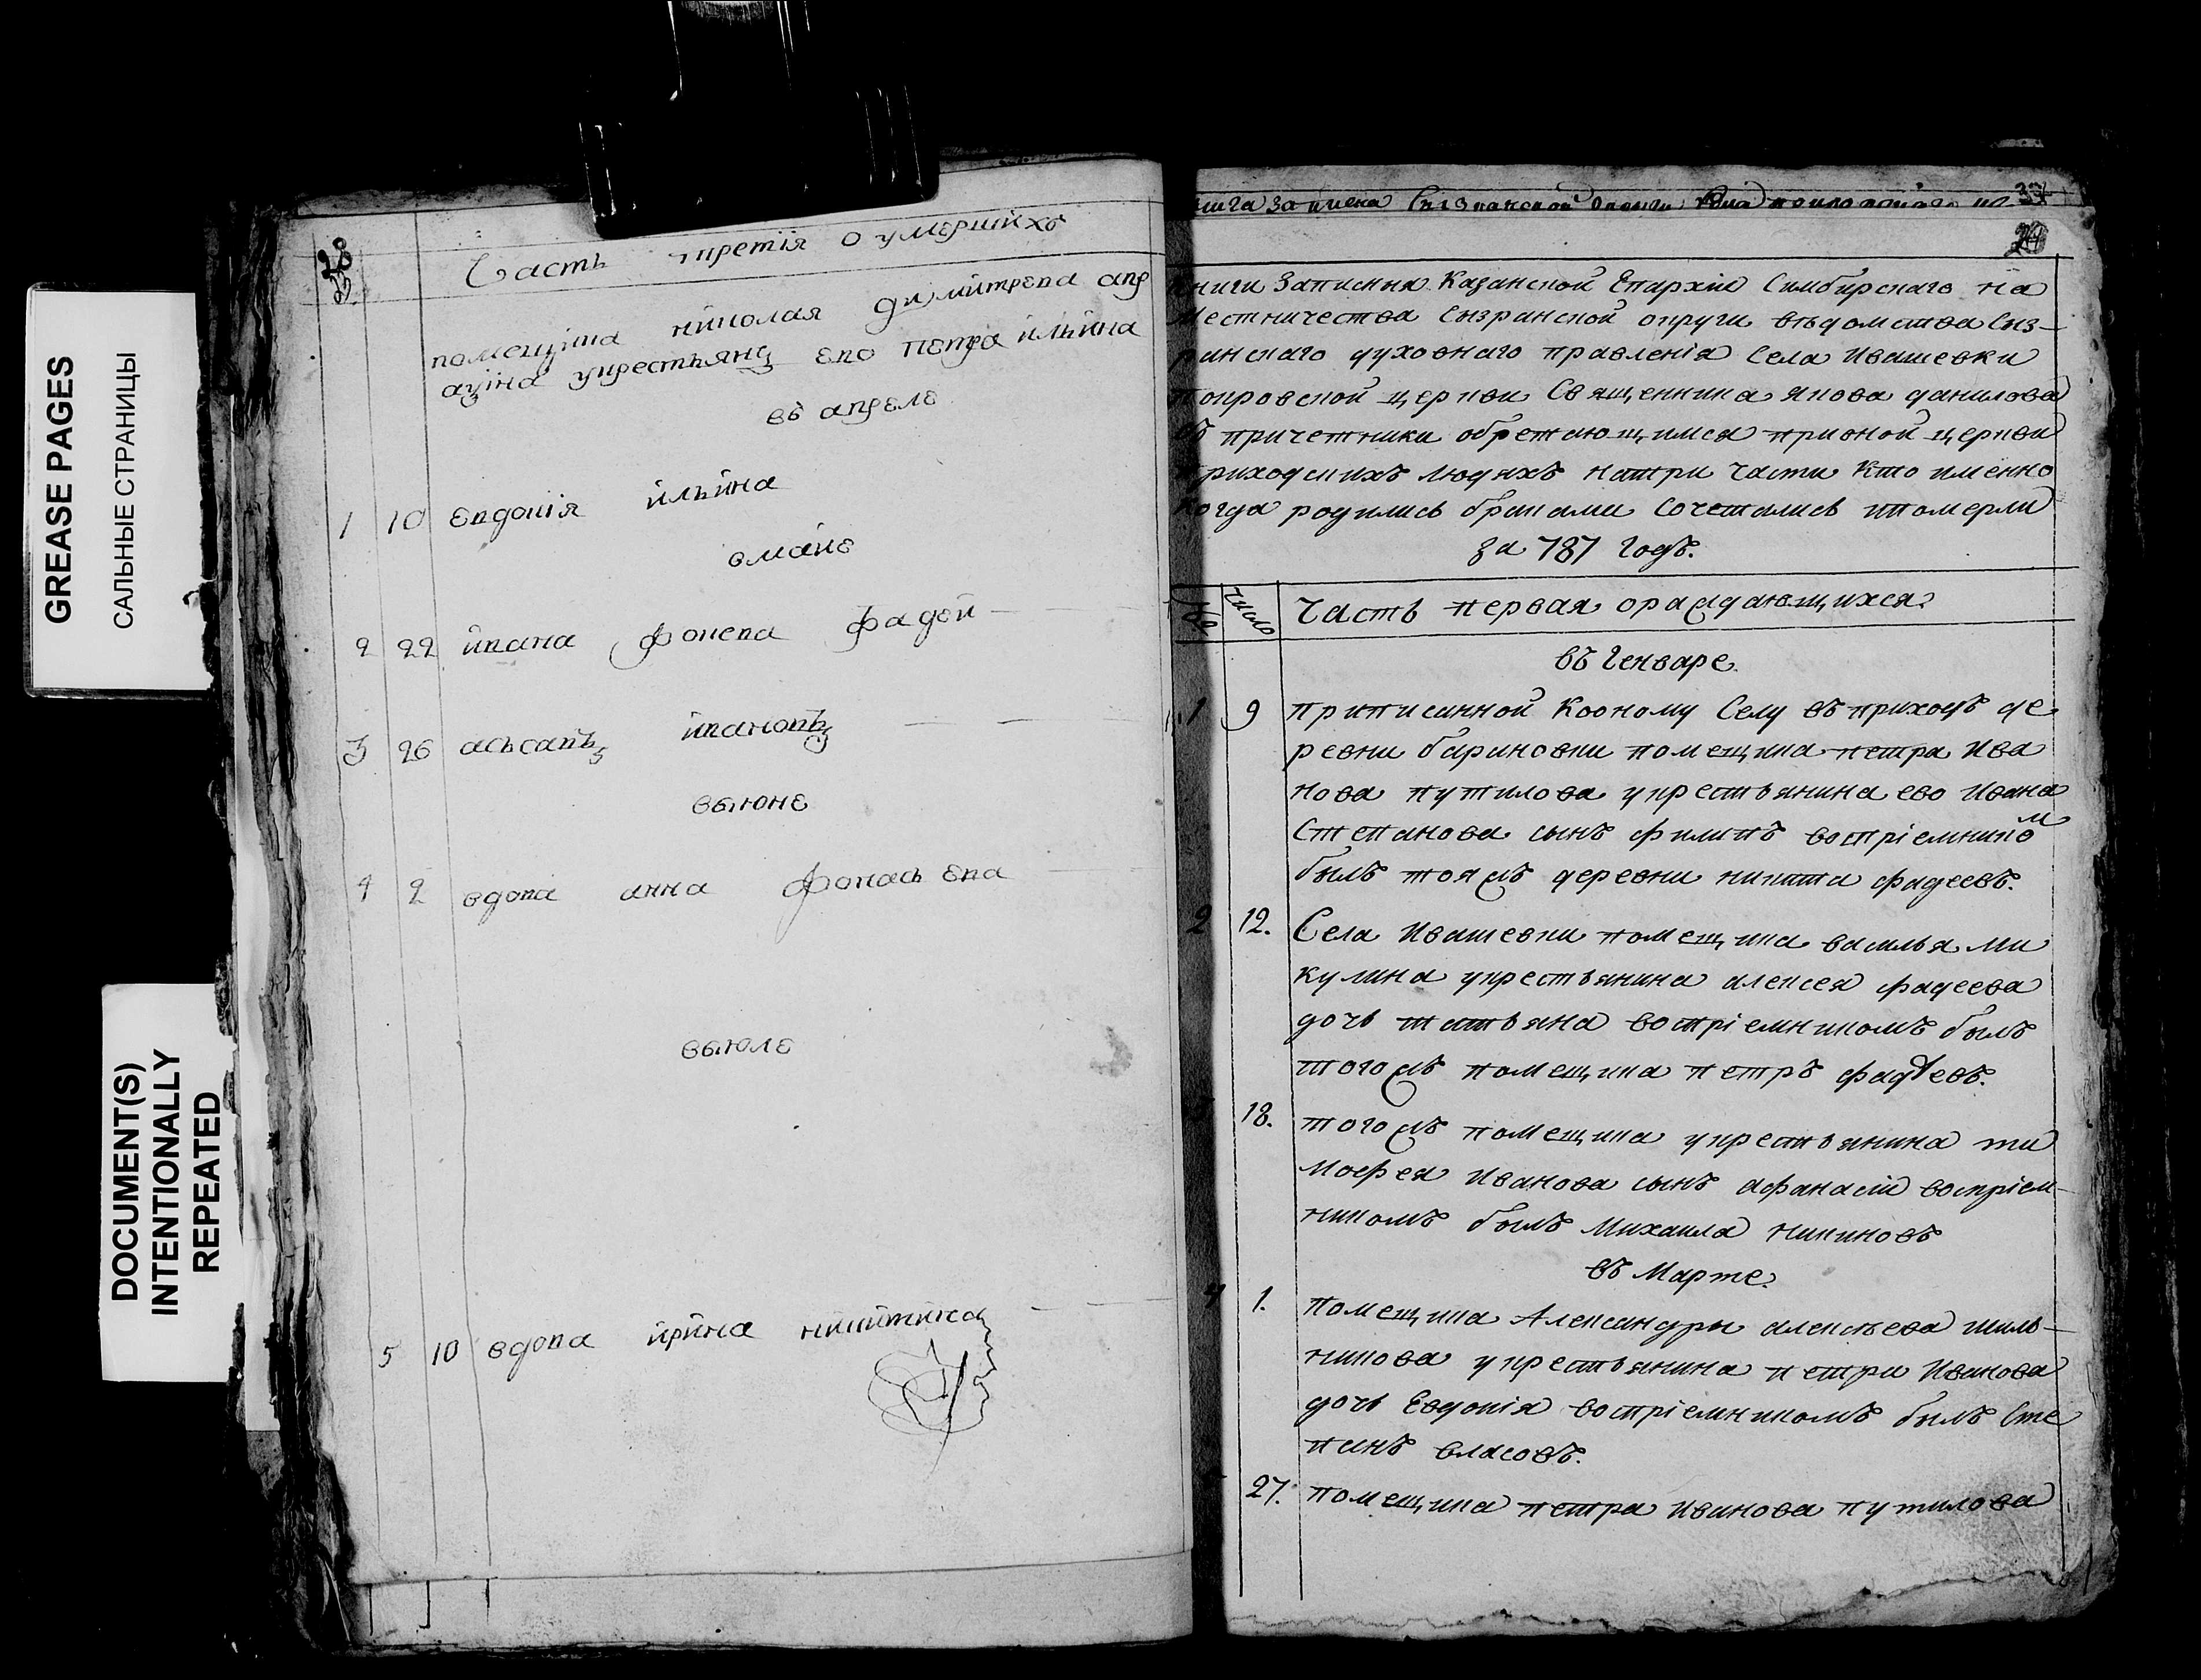 GREASE PAGES
САЛЬНЫЕ СТРАНИЦЫ
DOCUMENT(S)
INTENTIONALLY
REPEATED
28
Часть третія о умершихъ
помещика николая димитрева
укрестьянъ ево петра ильина
въ апреле
1 10 Евдокія ильина
вмаие
2 22 ивана фокева фадей
3 26 ивановъ
выюне
4 2 вдова анна фонасьева
выюле
5 10 вдова ирина никитина
Книги Записныя Казанской Епархіи Симбирскаго На
местничества Сызранской округи ведомства Сыз-
ранскаго духовнаго правленія Села Ивашевки
покровской церкви Священника якова данилова
съ причетники обретающимся прионой церкви
приходскихъ людяхъ натри части кто именно
когда родились браками Сочетались ипомерли
за 787 годъ.
число Часть первая ораждающихся.
въ Генваре.
1 9 приписанной Коономy Селу въ приходъ де
ревни бариновки помещика петра Ива
нова путилова укрестьянина ево Ивана
Степанова сынъ филипъ востріемникомъ
былъ тояжъ деревни никита фадеевъ.
2 12. Села Ивашевки помещика василья Ми
кулина укрестьянина алексея фадеева
дочь татьяна востріемникомъ былъ
тогожъ помещика петръ фадеевъ.
18. тогожъ помещика укрестьянина ти
мофея Иванова сынъ афанасій воспріем-
никомъ былъ Михаила никиновъ
въ Марте.
4 1. помещика Александры алексеева шиль-
никова укрестьянина петра Иванова
дочь Евдокія востріемникомъ былъ Сте
панъ власовъ.
27. помещика петра Иванова путилова